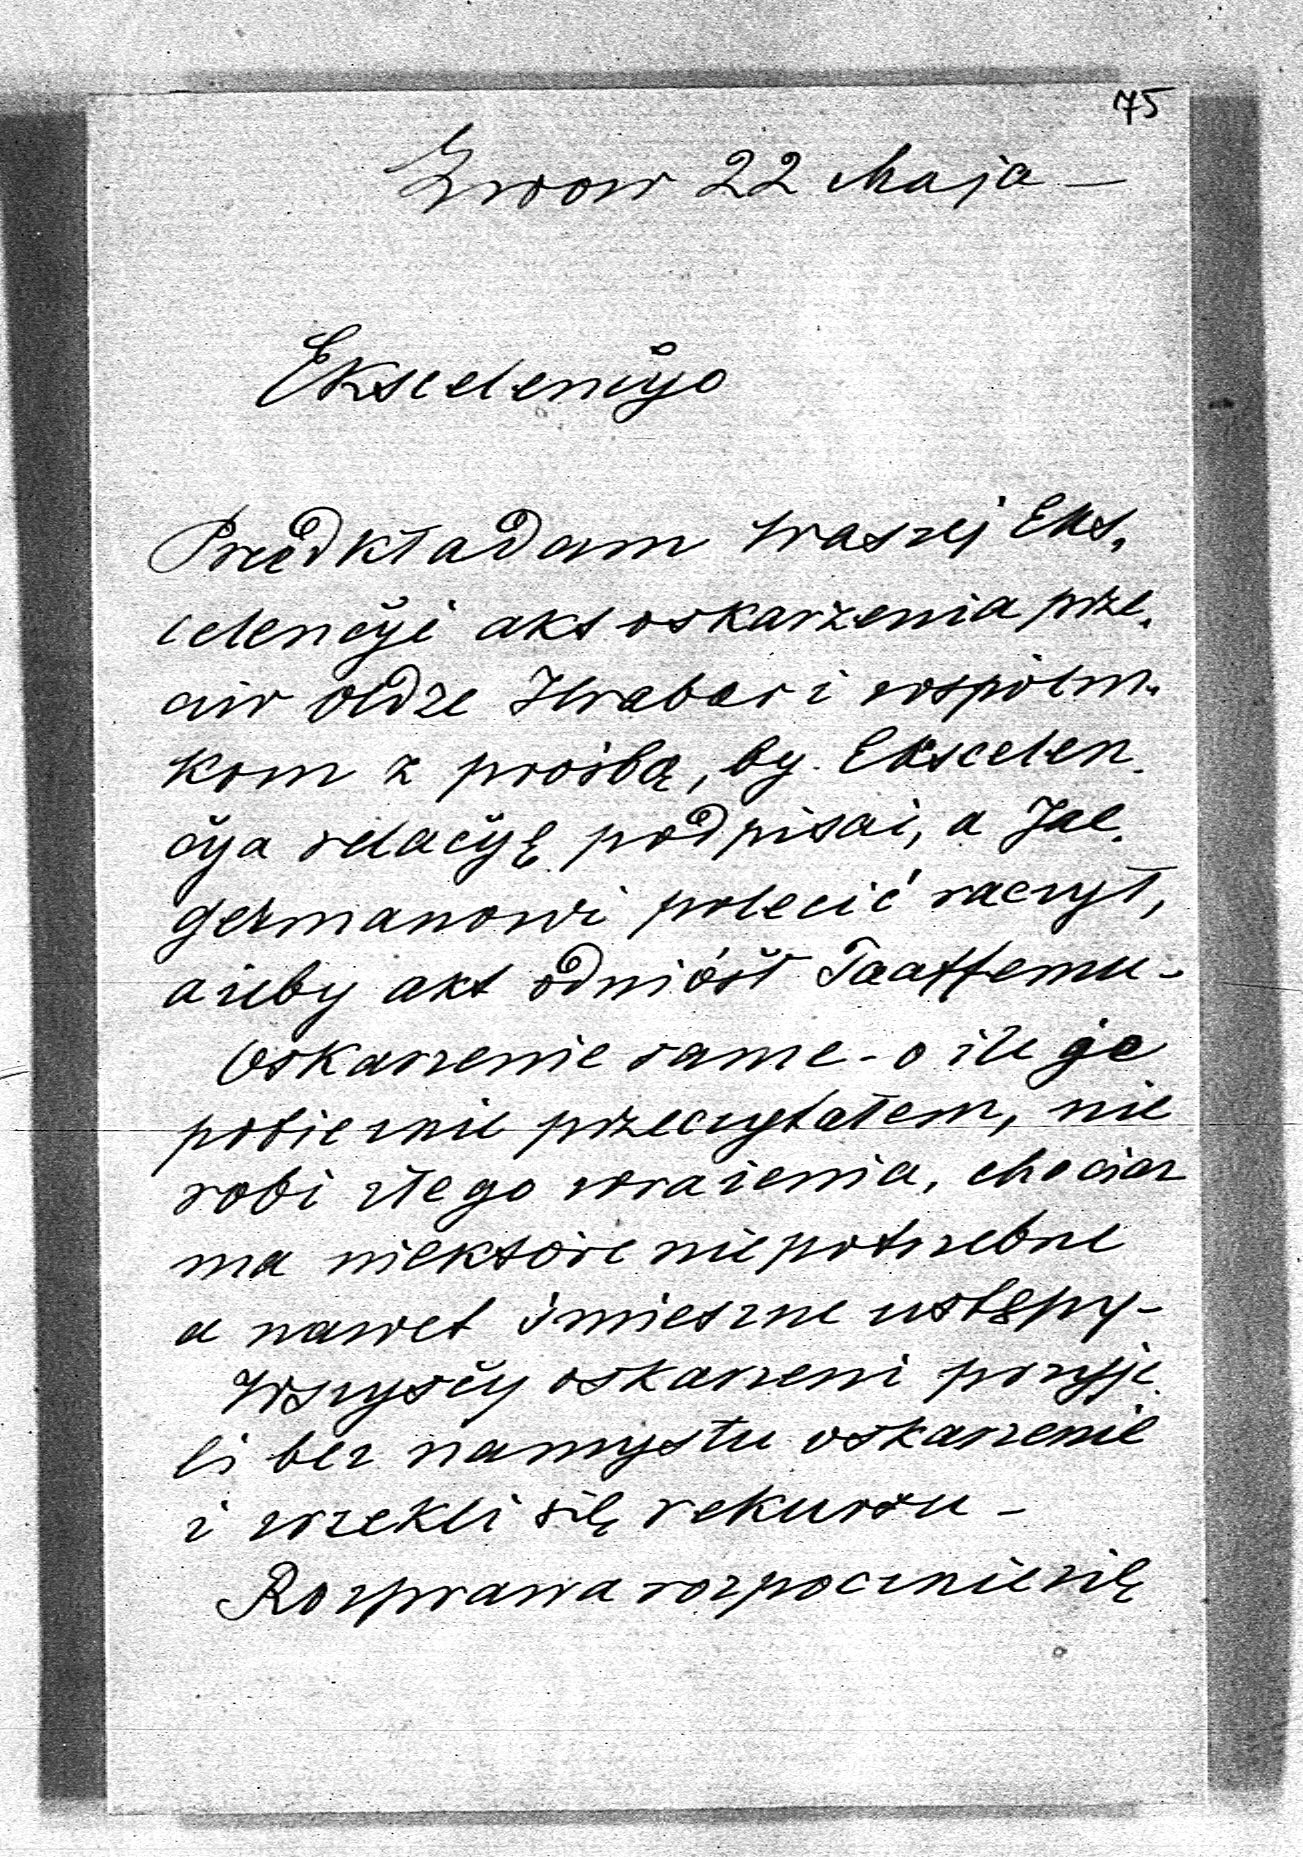 75
Lwow 22 Maja –
Ekscelencyo
Przedkładam Waszej Eks.
celencyi akt oskarżenia prze.
ciw Oldze Hrabar i wspólni.
kom z prośbą, by Ekscelen.
cya relacyę podpisać, a Jae.
germanowi polecić raczył,
ażeby akt odniósł Taaffemu –
Oskarzenie same – o ile je
pobieżnie przeczytałem, nie
robi złego wrażenia, chociaz
ma niektóre niepotrzebne
a nawet śmieszne ustępy –
Wszyscy oskarzeni przyję.
li bez namysłu oskarzenie
i zrzekli się rekursu –
Rozprawa rozpocznie się